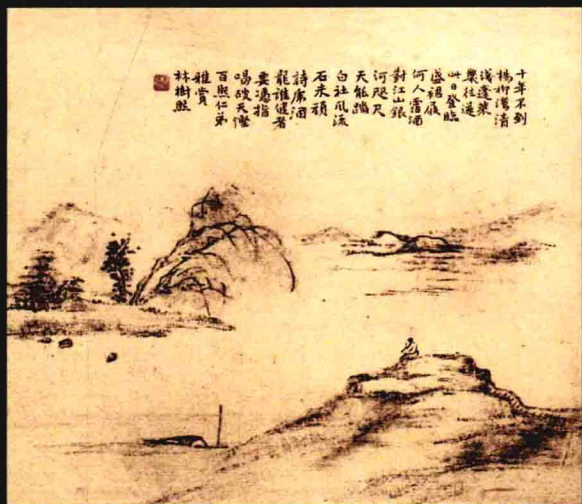 十年不到
楊柳灣清
淺蓬萊
業往還
此日登臨
盛裙屐
何人雪涕
對江山銀
河咫尺
天能蹋
白社風流
石未頑
詩虎酒
龍誰健者
要憑指
喝破天慳
百熙仁弟
雅賞
林樹熙